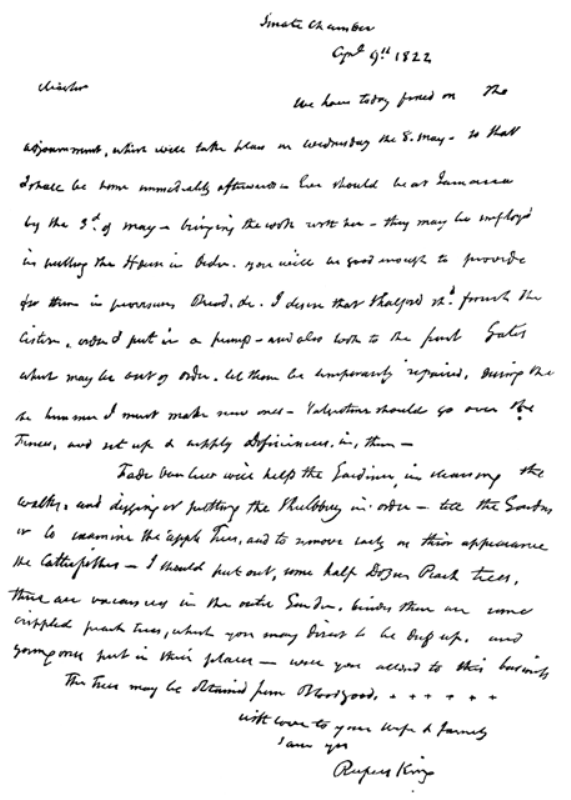 Senate Chamber
Apl 9th 1822
We have today fixed on the
adjournment, which will take place on Wednesday the 8. May - so that
I shall be home immediately afterwards - Eve should be at Jamaica
by the 3d. of May - bringing the cook with her - they may be employd
in putting the House in Order. you will be good enough to provide
for them in provisions Bread, &c. I desire that Halford shd. finish the
Cistern, and put in a pump - and also look to the front Gates
which may be out of order. let them be temporarily repaired, During the
summer I must make new ones - Valentine should go over the
Fences, and set up & supply Deficiences, in, them -
will help the Gardiner, in cleansing the
walks, and digging or putting the Shrubbery in order - tell the
to examine the apple Trees, and to remove early on their appearance
the Catterpillars - I should put out, some half Dozen Peach trees,
there are vacancies in the outer Garden. besides there are some
crippled peach trees, which you may direct to be dug up, and
young ones put in their places - will you attend to this business
The trees may be obtained from Bloodgood. + + + + + +
with love to your wife & family
I am yrs
Rufus King